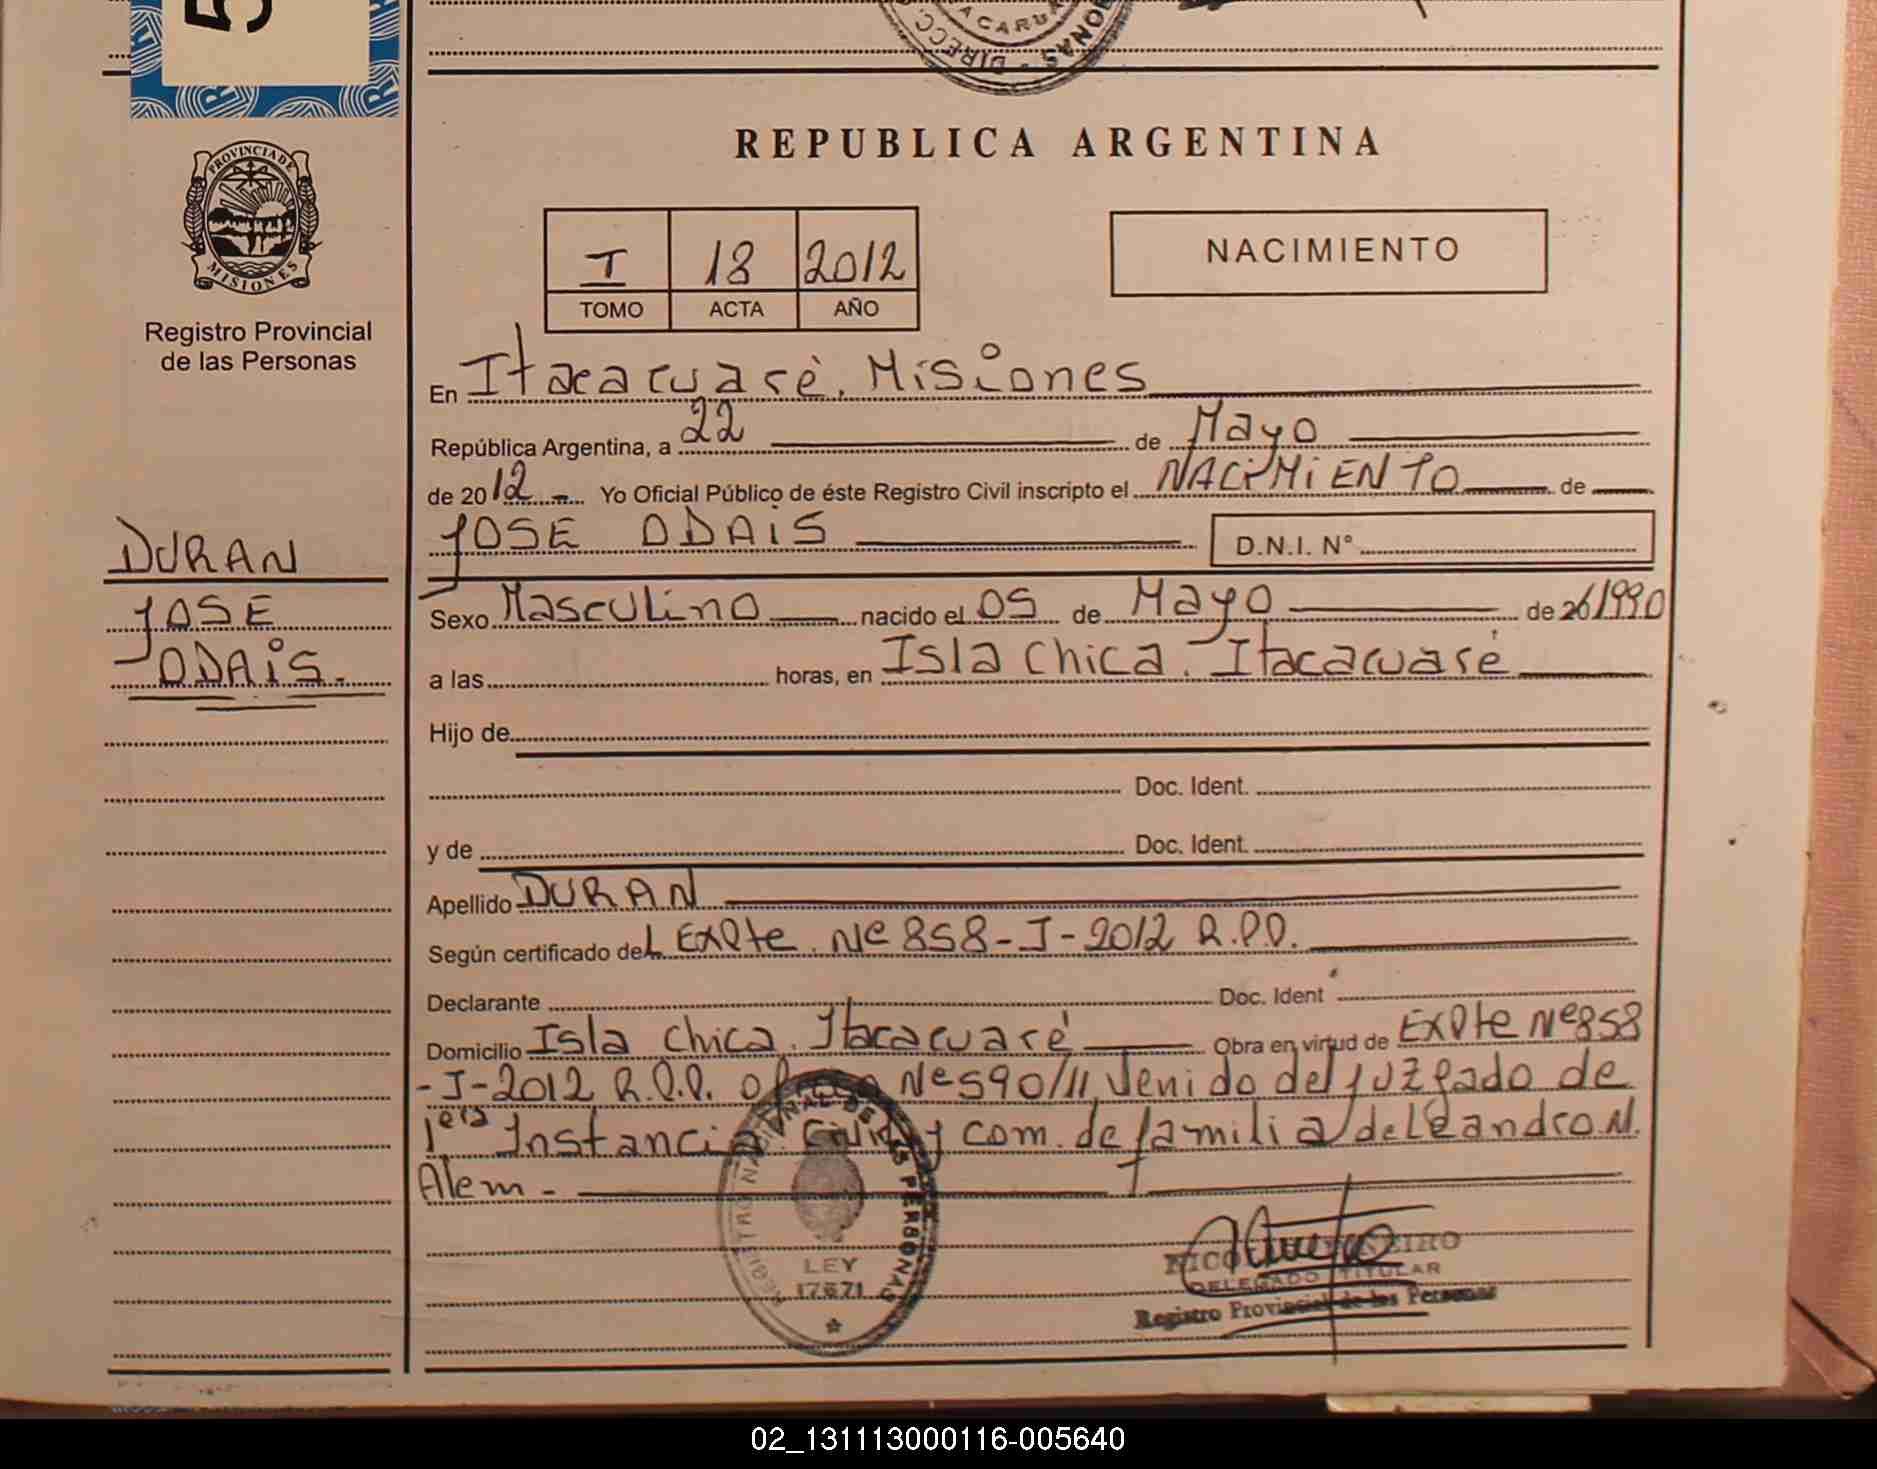 5
ACARUA
DIRECC. ONAS
REPUBLICA ARGENTINA
PROVINCIA DE
MISIONES
Registro Provincial
de las Personas
I 18 2012
TOMO ACTA AÑO
NACIMIENTO
En Itacaruaré, Misiones
República Argentina, a 22 de Mayo
de 2012 Yo Oficial Público de éste Registro Civil inscripto el NACIMIENTO de
JOSE ODAIS D.N.I. N°
DURAN
JOSE
ODAIS.
Sexo Masculino nacido el 05 de Mayo de 20/1990
a las horas, en Isla Chica. Itacaruaré
Hijo de
Doc. Ident.
y de Doc. Ident.
Apellido DURAN
Según certificado del Expte. Nº 858-I-2012 R.P.P.
Declarante Doc. Ident
Domicilio Isla Chica. Itacaruaré Obra en virtud de Expte Nº 858
-I-2012 R.P.P. oficio Nº 590/11, Venido del Juzgado de
1era Instancia Civil y Com. de familia de Leandro N.
Alem -
REGISTRO NACIONAL DE LAS PERSONAS
LEY
17671
DELEGADO TITULAR
Registro Provincial de las Personas
02_131113000116-005640